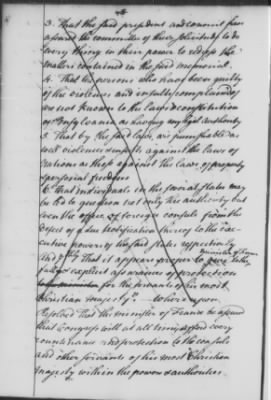 3. That the said president and council have
assured the committee of their solicitude to do
every thing in their power to redress the
matters contained in the said memorial.
4. That the persons who have been guilty
of the violences and insults complained of
are not known to the laws & constitution
of Pensylvania as having any legal authority
5. That by the said laws, are punishable as
well violences & insults against the laws of
nations as those against the laws of property
& personal freedom
6th That individuals in the several states may
be led to question not only the authority but
even the office of foreign consuls from the
defect of a due notification thereof to the exe-
cutive powers of the said states respectively
And 7th That it appears proper to give
the minister of France
full & explicit assurances of protection
for the servants of his most
Christian majesty. Whereupon
Resolved That the minister of France be assured
that Congress will at all times afford every
countenance and protection to the consuls
and other servants of his most Christian
majesty within their powers & authorities